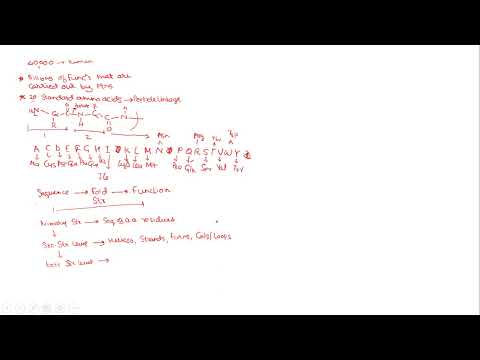 60,000 → human
* Billions of func's that are
carried out by PTNS
* 20 Standard amino acids → Peptide linkage
H2N - C - C - N - C - C - N
O H O
1 2 Asn Arg Trp
A C D E F G H I K L M N P Q R S T V W Y
Ala Cys Asp Leu Met Pro Gln Ser Val Tyr
Sequence → Fold → Function
Str
Primary Str → Seq of a.a residues
Sec. Str level → Helices, Strands, Turns, Coils/Loops
Tert. Str level →